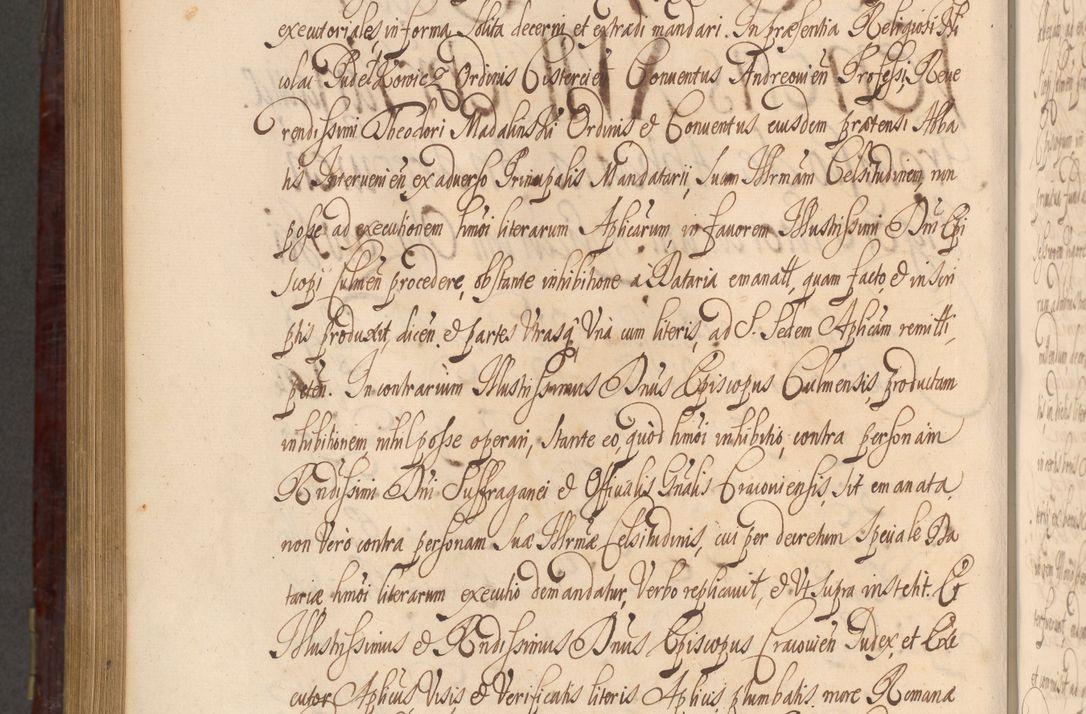 executoriales, in forma solita decerni et extradi mandari. In præsentia Religiosi Ni
colai Pudełkowicz Ordinis Cistercien̄ Conventus Andreovien̄ Professi, Reve
rendissimi Theodori Madalinski Ordinis et Conventus, eiusdem prætensi Abba
tis Intervenien̄, ex adverso Principalis Mandatarij, suam Illrmam Celsitudinem, non
posse ad executionem hmōi literarum Aplicarum, in favorem Illustrissimi Dni Epi
scopi Culmen̄ procedere, obstante inhibitione a Dataria emanatt, quam facto, et in scri
ptis produxit, dicen̄. et partes utrasq́ Una cum literis, ad S. Sedem Aplicam remitti,
peten̄. In contrarium Illustrissimus Dnus Episcopus Culmensis, productam
inhibitionem, nihil posse operari, stante eo, quod hmōi inhibitio, contra personam
Rndissimi Dni Suffraganei et Officialis Gnalis Cracoviensis, sit emanata,
non vero contra personam Suæ Illrmæ Celsitudinis, cui per decretum speciale Da
tariæ hmōi literarum executio demandatur, Verbo replicavit, et Ut supra institit. Et
Illustrissimus et Rndissimus Dnus Episcopus Cracovien̄ Judex, et Exe
cutor Aplicus, Visis et Verificatis literis Aplicis, plumbatis, more Romanæ